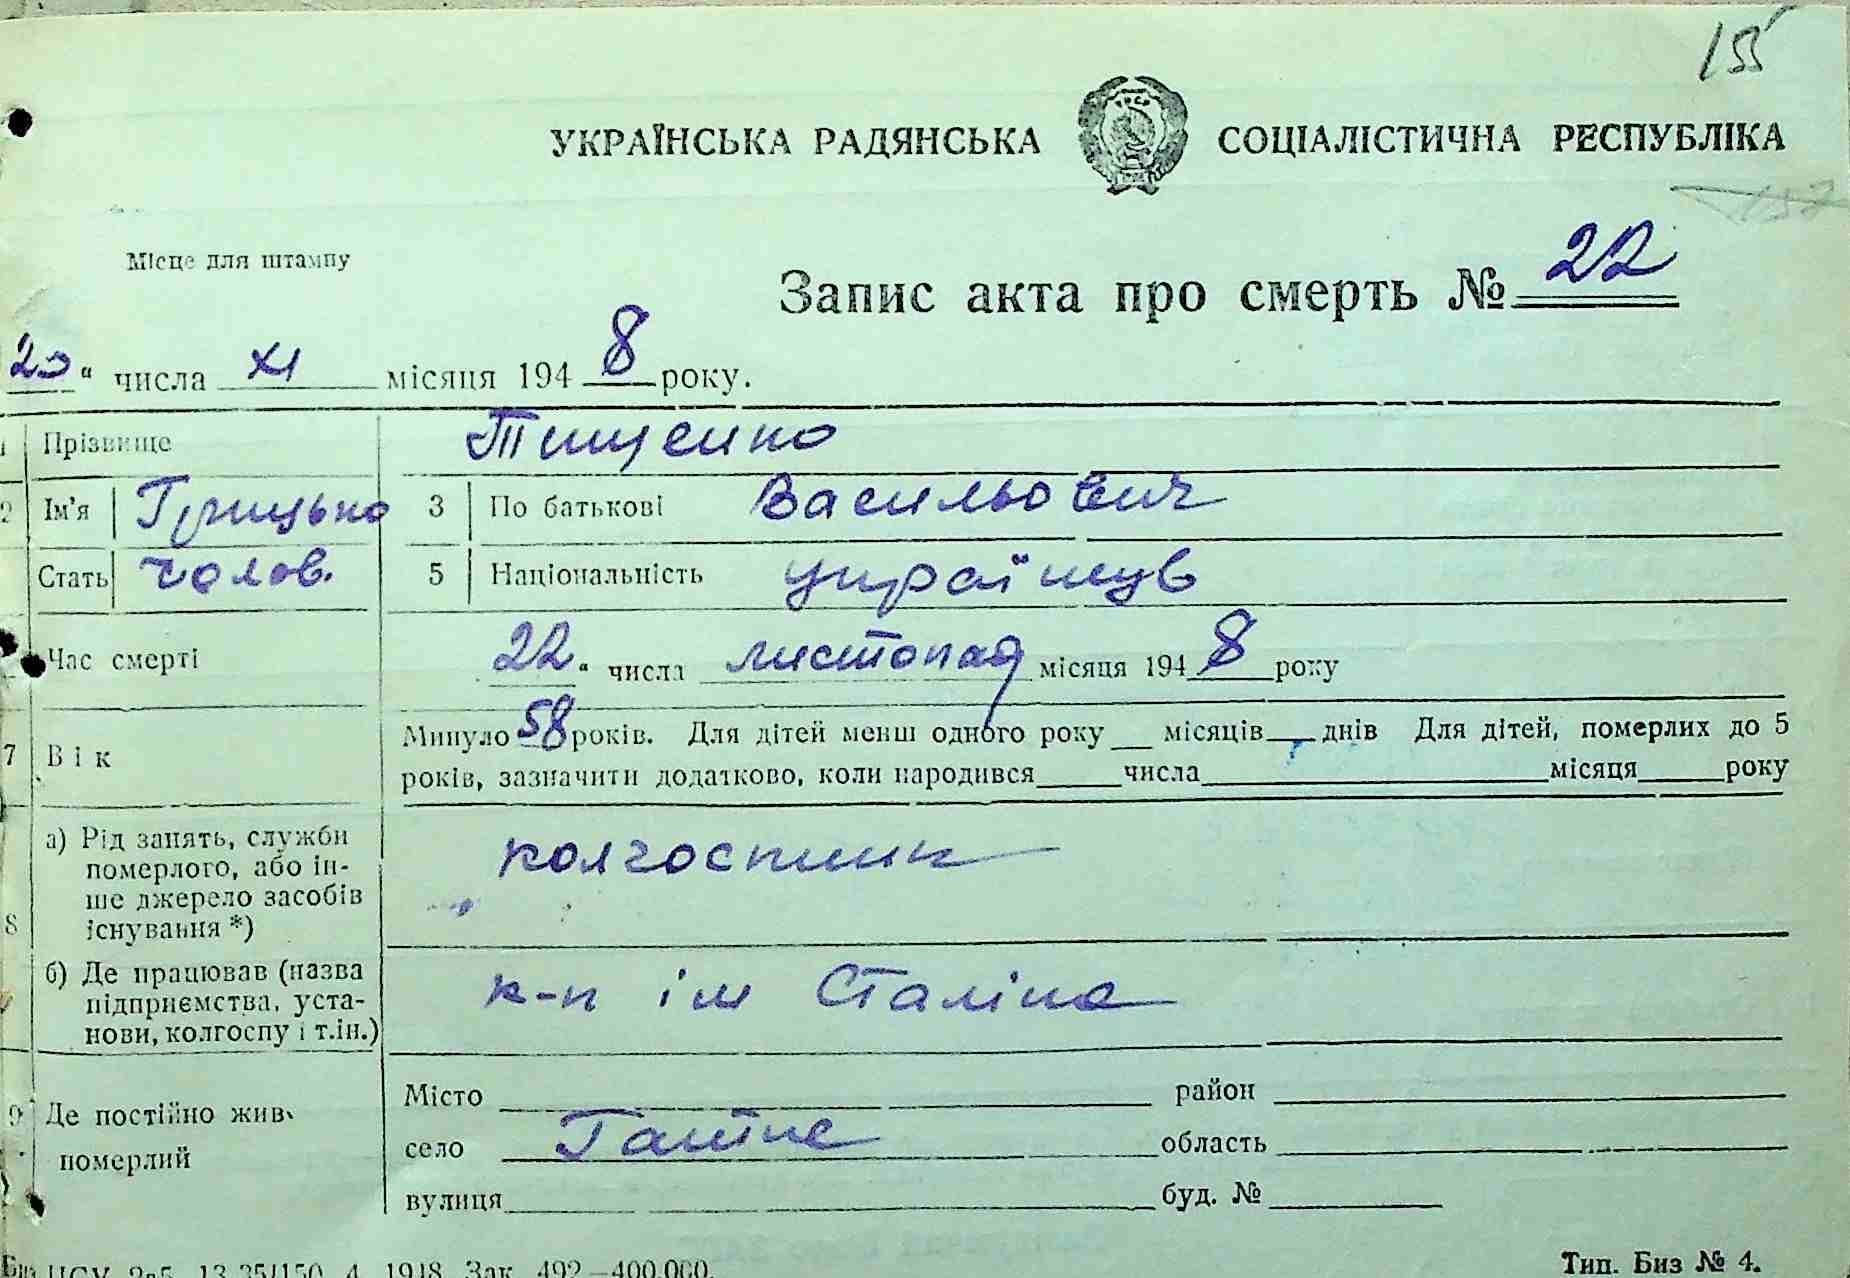 155
УКРАЇНСЬКА РАДЯНСЬКА СОЦІАЛІСТИЧНА РЕСПУБЛІКА
УРСР
157
Місце для штампу
Запис акта про смерть № 22
23 " числа XI місяця 194 8 року.
1 Прізвище Тищенко
2 Ім'я Грицько 3 По батькові Васильович
Стать чолов. 5 Національність українець
Час смерті 22 " числа листопад місяця 194 8 року
7 Вік Минуло 58 років. Для дітей менш одного року __ місяців __ днів Для дітей, померлих до 5
років, зазначити додатково, коли народився ____ числа ____ місяця ____ року
8 а) Рід занять, служби
померлого, або ін-
ше джерело засобів
існування *)
колгоспник
б) Де працював (назва
підприємства, уста-
нови, колгоспу і т.ін.)
к-п ім Сталіна
9 Де постійно жив
померлий
Місто ____ район ____
село Гатне область ____
вулиця ____ буд. № ____
ЦСУ 13 35/150 4 1948 Зак. 492—400.000. Тип. Биз № 4.